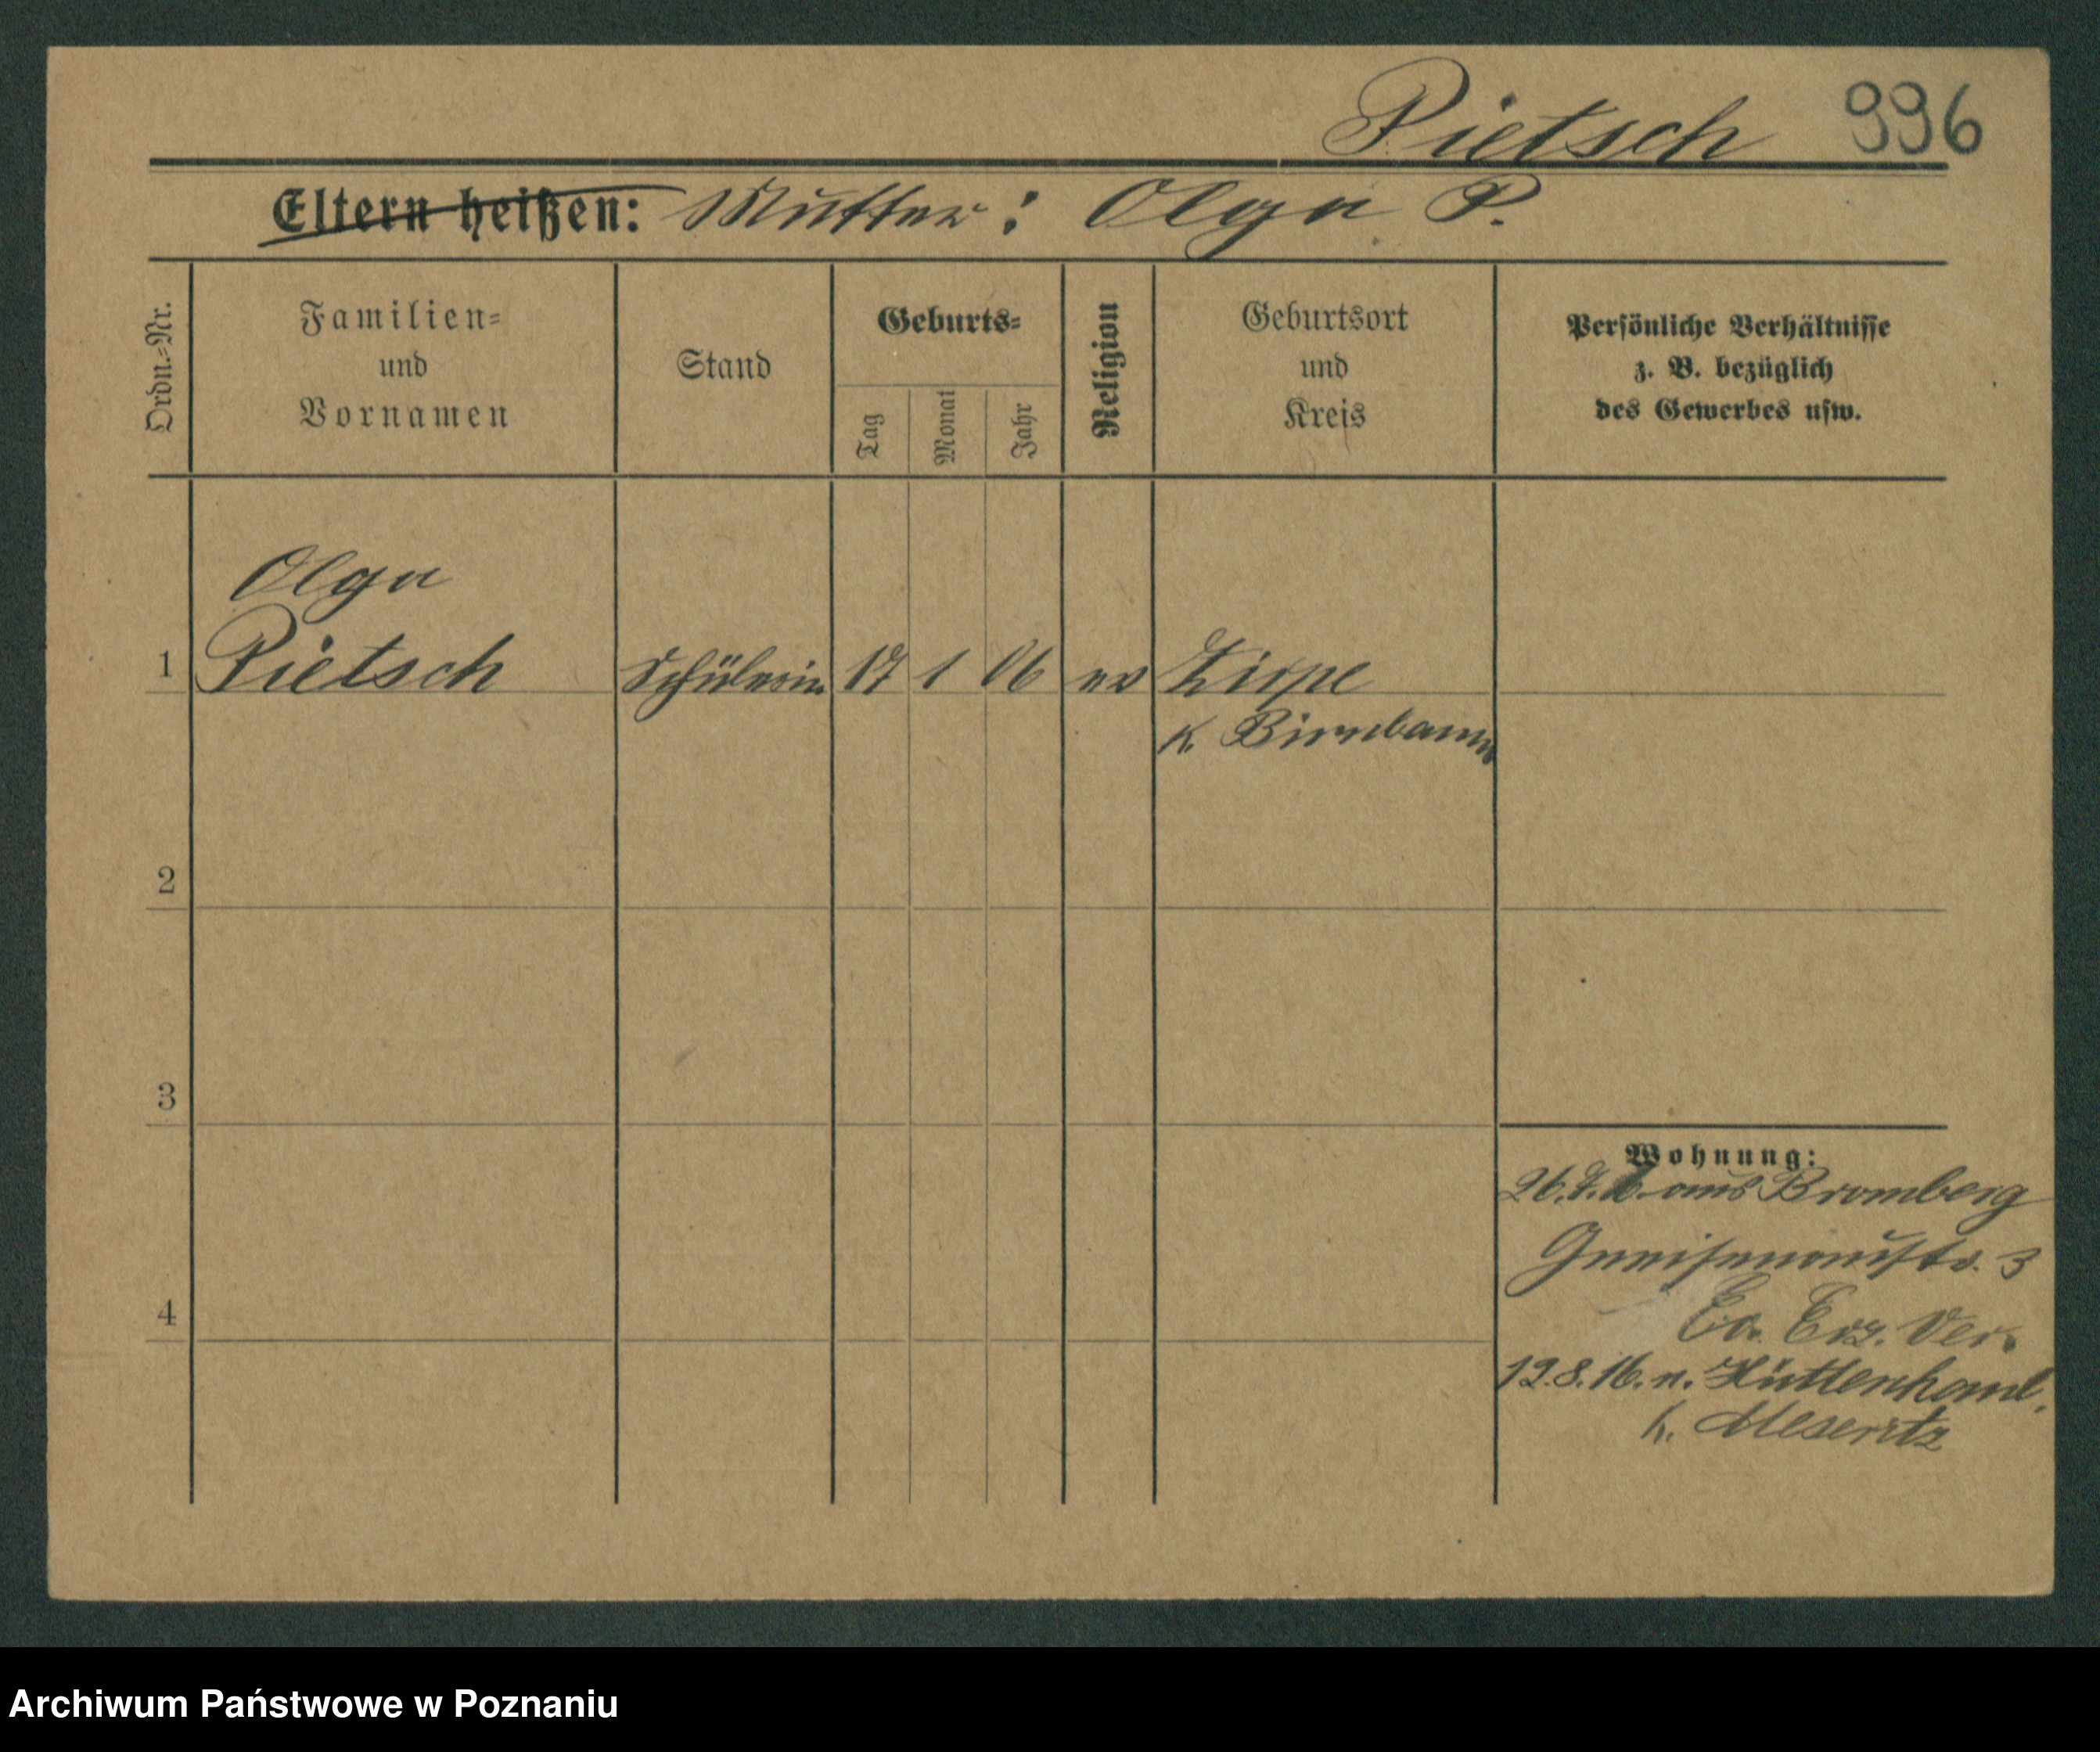 Pietsch 996
Eltern heißen: Mutter: Olga P.
Ordn.-Nr.
Familien-
und
Vornamen
Stand
Geburts-
Tag
Monat
Jahr
Religion
Geburtsort
und
Kreis
Persönliche Verhältnisse
z. B. bezüglich
des Gewerbes usw.
Olga
1 Pietsch Schülerin 17 1 06 ev Zirpe
K. Birnbaum
2
3
4
Wohnung:
26. aus Bromberg
Gneisenaustr. 3
Ev. Erz. Ver.
19.8.16. n. Hüttenhaul.
K. Meseritz
Archiwum Państwowe w Poznaniu